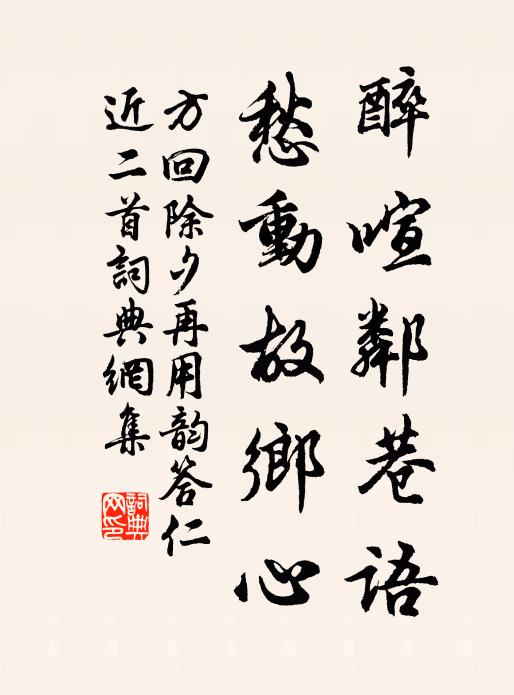 醉喧鄰巷語
愁動故鄉心
方回除夕再用韵答仁
近二首詞典網集
詞典網印